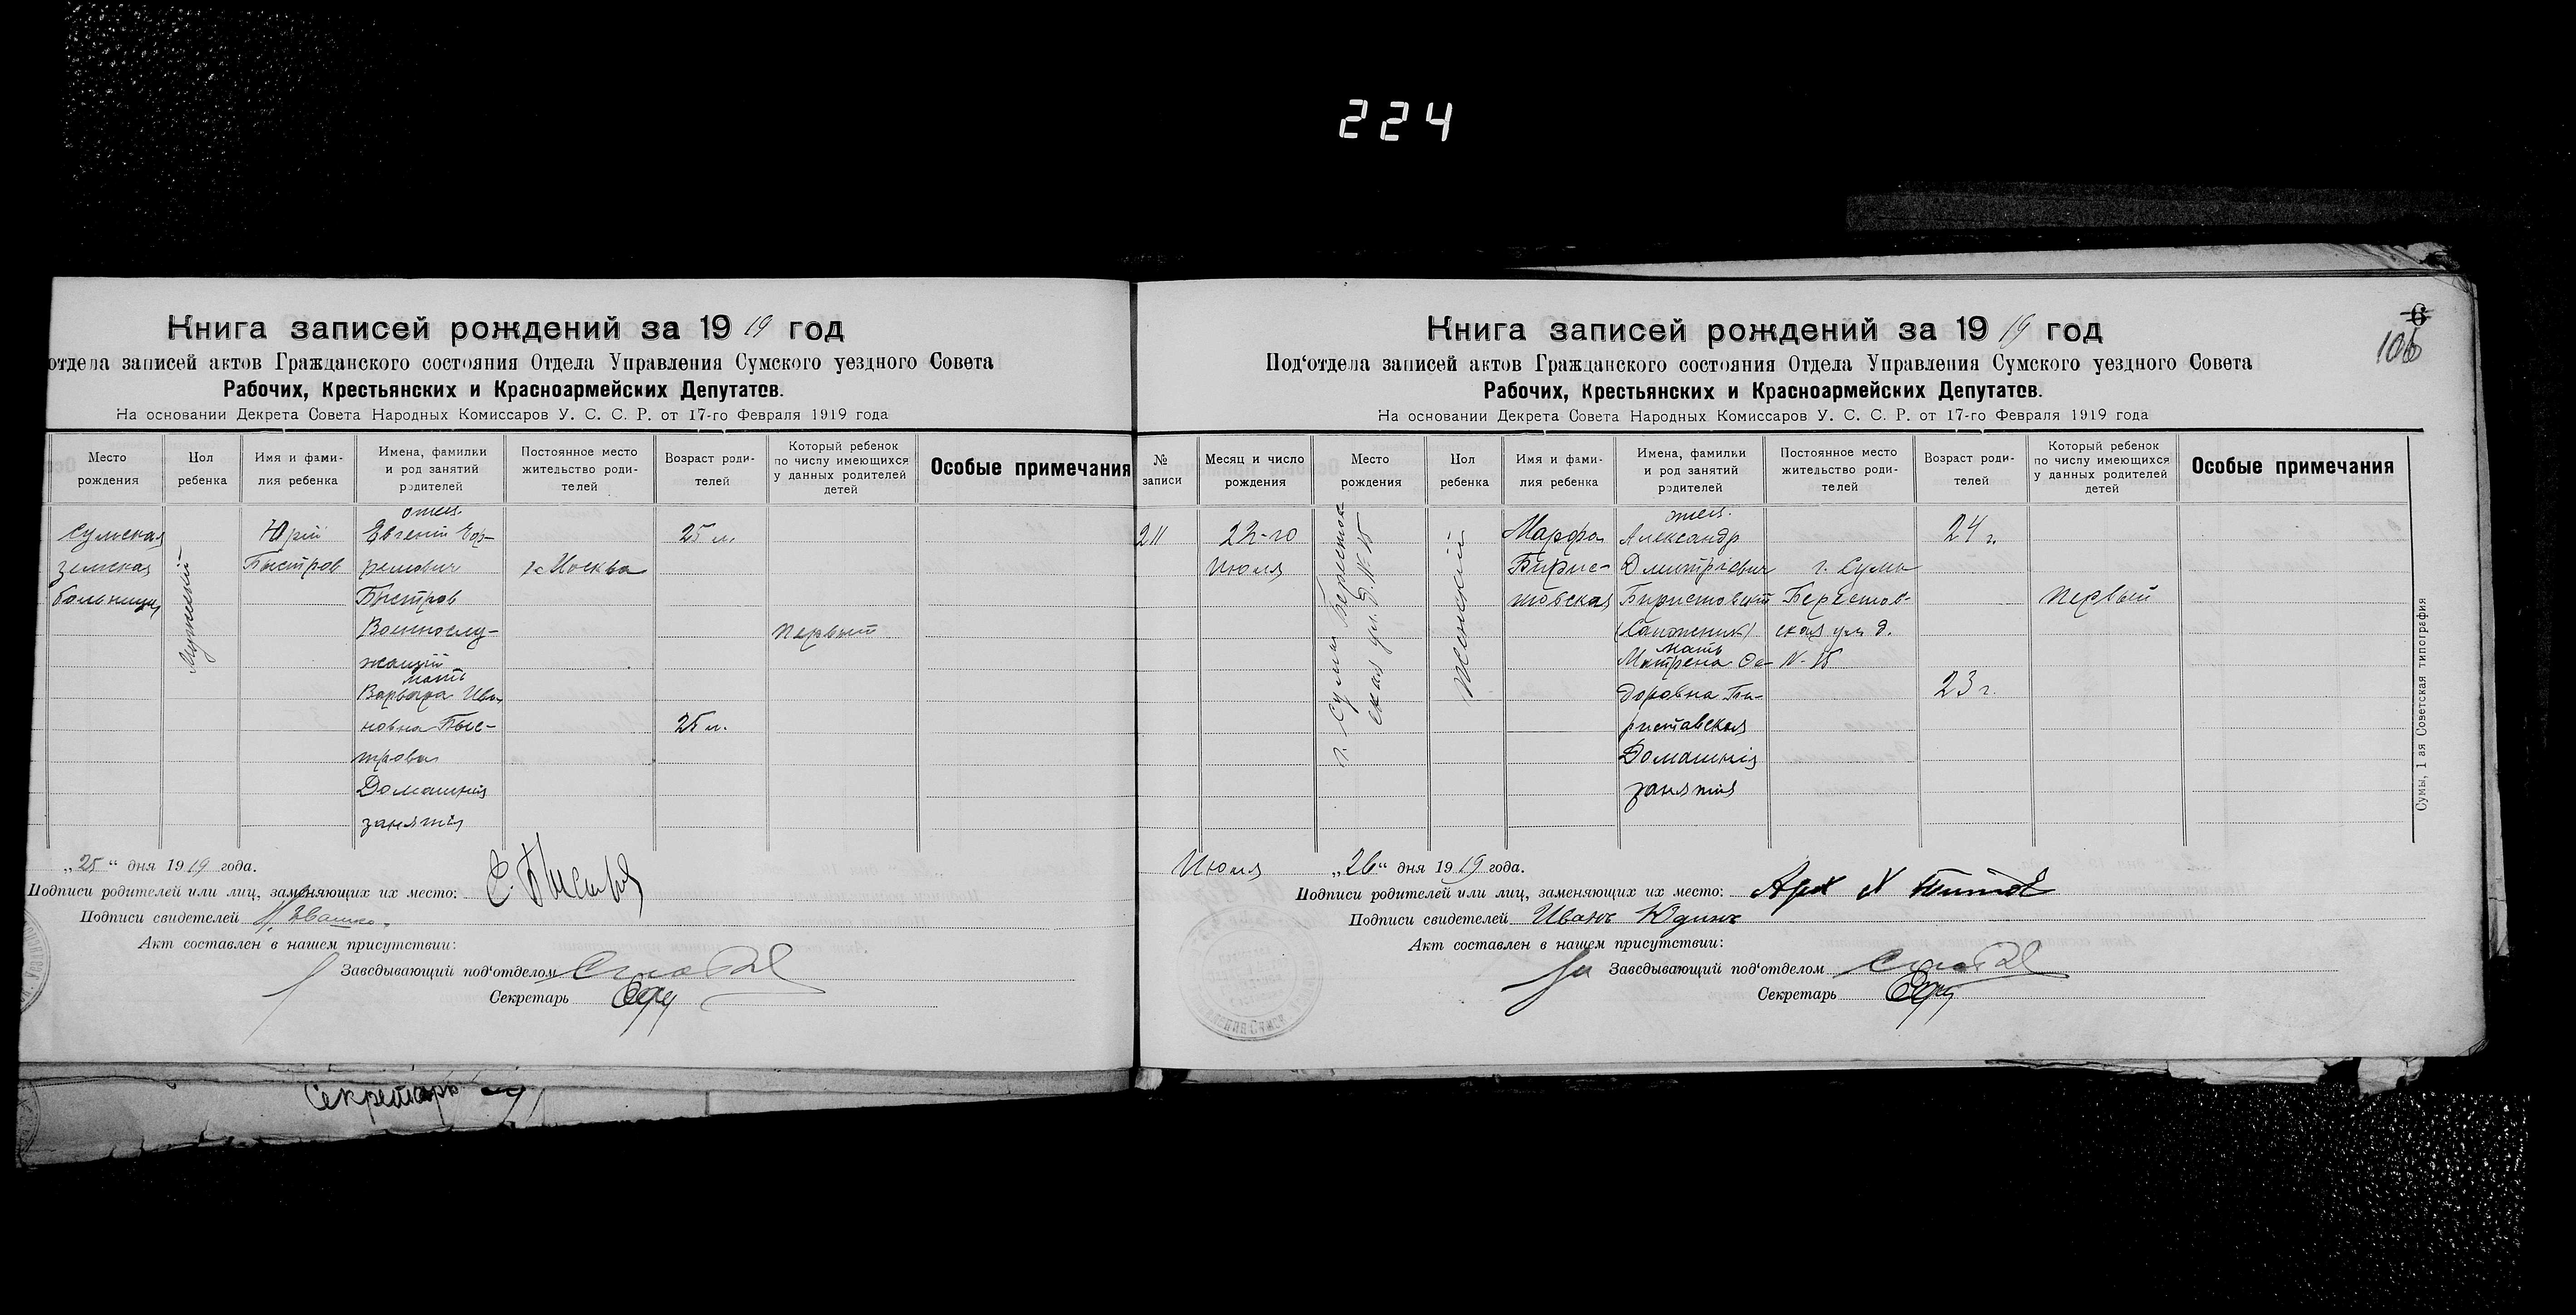 224
Книга записей рождений за 1919 год
отдела записей актов Гражданского состояния Отдела Управления Сумского уездного Совета
Рабочих, Крестьянских и Красноармейских Депутатов.
На основании Декрета Совета Народных Комиссаров У. С. С. Р. от 17-го Февраля 1919 года
Место рождения
Пол ребенка
Имя и фами-
лия ребенка
Имена, фамилки
и род занятий
родителей
Постоянное место
жительство роди-
телей
Возраст роди-
телей
Который ребенок
по числу имеющихся
у данных родителей
детей
Особые примечания
Сумская
земская
больница
Мужеский
Юрій
Быстров
отец
Евгений
Быстров
Военнослу-
жащій
мать
Варвара Ива-
новна Быс-
трова
Домашнія
занятія
г. Москва
25 л.
25 л.
первый
„25“ дня 1919 года.
Подписи родителей или лиц, заменяющих их место: Е. Быстров
Подписи свидетелей
Акт составлен в нашем присутствии:
Заведывающий под‘отделом
Секретарь
Секретарь
6
106
Книга записей рождений за 1919 год
Под‘отдела записей актов Гражданского состояния Отдела Управления Сумского уездного Совета
Рабочих, Крестьянских и Красноармейских Депутатов.
На основании Декрета Совета Народных Комиссаров У. С. С. Р. от 17-го Февраля 1919 года
№
записи
Месяц и число
рождения
Место
рождения
Пол
ребенка
Имя и фами-
лия ребенка
Имена, фамилки
и род занятий
родителей
Постоянное место
жительство роди-
телей
Возраст роди-
телей
Который ребенок
по числу имеющихся
у данных родителей
детей
Особые примечания
211
Июля
г. Сумы Берестов-
ская ул. д. №
Женский
Марфа
Бирис-
товская
отец
Александр
Дмитріевич
Биристовский
(Сапожник)
мать
Матрена Фе-
доровна Би-
риставская
Домашнія
занятія
г. Сумы
Берестов-
ская ул. д.
24 г.
23 г.
первый
Июля „26“ дня 1919 года.
Подписи родителей или лиц, заменяющих их место:
Подписи свидетелей Иванъ Юдинъ
Акт составлен в нашем присутствии:
За Заведывающий под‘отделом
Секретарь
Сумы, 1 ая Советская типография